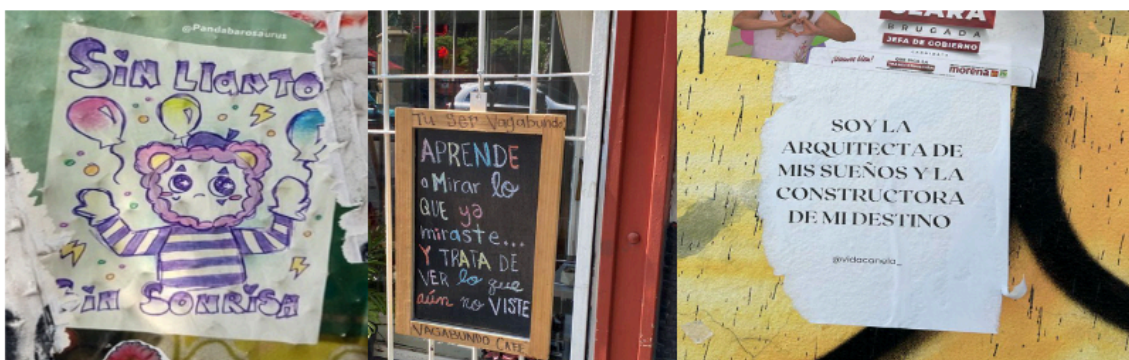 @Pandabarosaurus
Sin Llanto
Sin Sonrisa
Tu Ser Vagabundo
APRENDE
a Mirar lo
QUE ya
miraste...
Y TRATA DE
VER lo que
aún no VISTE
VAGABUNDO CAFE
CLARA
BRUGADA
JEFA DE GOBIERNO
morena
SOY LA
ARQUITECTA DE
MIS SUEÑOS Y LA
CONSTRUCTORA
DE MI DESTINO
@vidacanela_